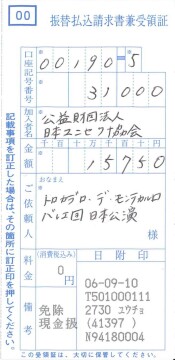 00
振替払込請求書兼受領証
口座記号番号
00190=5
31000
加入者名
公益財団法人
日本ユニセフ協会
金額
千 百 十 万 千 百 十 円
15750
ご依頼人
おなまえ
トロカデロ・デ・モンテカルロ
バレエ団 日本公演
様
料金
(消費税込み)
0円
備考
免除
現金扱
日附印
06-09-10
T501000111
2730 ユウチョ
(41397 )
N94180004
記載事項を訂正した場合は、その箇所に訂正印を押してください。
この受領証は、大切に保管してください。